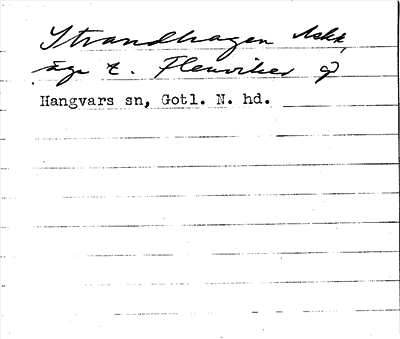 Strandhagen Åskk,
äga t. Flenviker g
Hangvars sn, Gotl. N. hd.